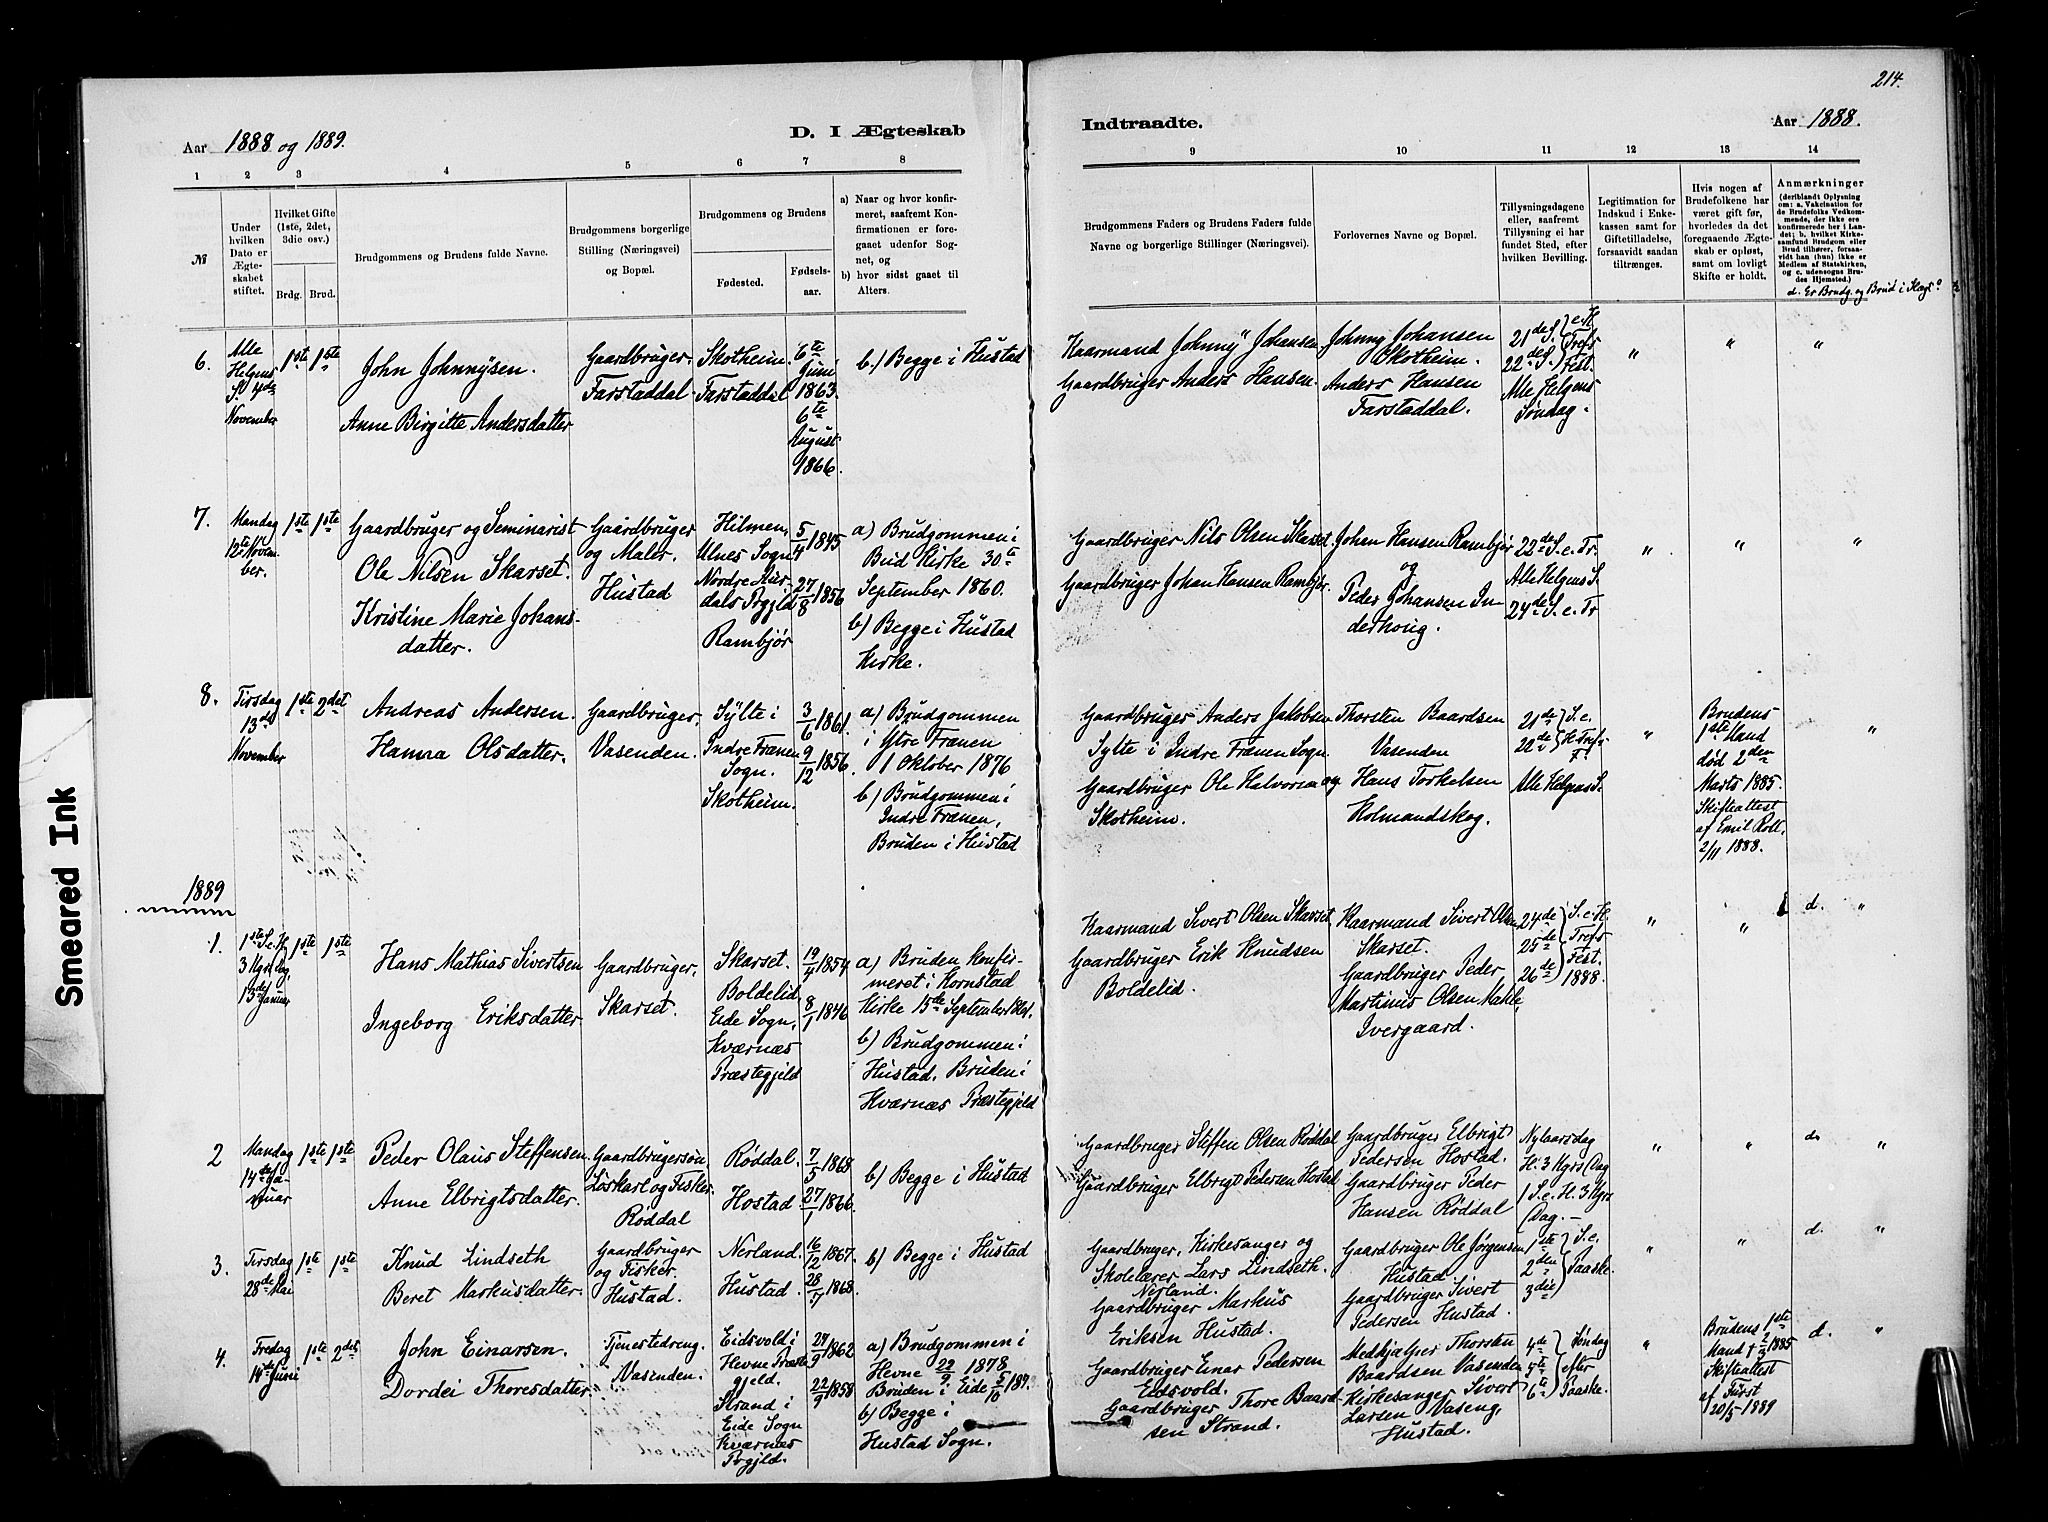 214.
Aar 1888 og 1889.
D. I Ægteskab
Indtraadte.
Aar 1888.
1 2 3 4 5 6 7 8
9 10 11 12 13 14
№
Under hvilken Dato er Ægteskabet stiftet.
Hvilket Gifte (1ste, 2det, 3die osv.)
Brdg. Brud.
Brudgommens og Brudens fulde Navne.
Brudgommens borgerlige Stilling (Næringsvei) og Bopæl.
Brudgommens og Brudens
Fødested.
Fødselsaar.
a) Naar og hvor konfirmeret, saafremt Konfirmationen er foregaaet udenfor Sognet, og
b) hvor sidst gaaet til Alters.
Brudgommens Faders og Brudens Faders fulde Navne og borgerlige Stillinger (Næringsvei).
Forlovernes Navne og Bopæl.
Tillysningsdagene eller, saafremt Tillysning ei har fundet Sted, efter hvilken Bevilling.
Legitimation for Indskud i Enkekassen samt for Giftetilladelse, forsaavidt saadan tiltrænges.
Hvis nogen af Brudefolkene har været gift før, hvorledes da det foregaaende Ægteskab er opløst, samt om lovligt Skifte er holdt.
Anmærkninger
(deriblandt Oplysning om: a. Vakcination for de Brudefolks Vedkommende, der ikke ere konfirmerede her i Landet; b. hvilket Kirkesamfund Brudgom eller Brud tilhører, forsaavidt han (hun) ikke er Medlem af Statskirken, og c. udensogns Brudes Hjemsted.)
d. Er Brudg. og Brud i Slægt
6.
Alle
Helgens
S. 4de
November
1ste 1ste
John Johnnÿsen.
Anne Birgitte Andersdatter
Gaardbruger.
Farstaddal
Skotheim
Farstaddal
6te
Juni
1863.
6te
August
1866.
b.) Begge i Hustad
Kaarmand Johnnÿ Johansen
Gaardbruger Anders Hansen.
Johnny Johansen
Skotheim.
Anders Hansen
Farstaddal.
21de S. e. H.
22de S. Trefs Fest.
Alle Helgens
Søndag.
" " "
7.
Mandag
12te Novem-
ber.
1ste 1ste
Gaardbruger og Seminarist
Ole Nilsen Skarset.
Kristine Marie Johans-
datter.
Gaardbruger
og Maler.
Hustad
Hilmen,
Ulnes Sogn
Nordre Aur-
dals Prgjld
Rambjør
5/4 1845
27/8 1856
a) Brudgommen i
Bud Kirke 30te
September 1860.
b) Begge i Hustad
Kirke.
Gaardbruger Nils Olsen Skarset
Gaardbruger Johan Hansen Rambjør.
Johan Hansen Rambjør
og
Peder Johansen In-
derhoug.
22de S. e. Tr.
Alle Helgens S.
24de S. e. Tr
" " "
8.
Tirsdag
13de
November
1ste 2det
Andreas Andersen.
Hanna Olsdatter.
Gaardbruger,
Vasenden.
Sÿlte i
Indre Frænen
Sogn.
Skotheim.
3/6 1861.
9/12 1856.
a) Brudgommen
i Ytre Frænen
1 Oktober 1876
b) Brudgommen i
Indre Frænen,
Bruden i Hustad
Gaardbruger Anders Jakobsen
Sylte i Indre Frænen Sogn.
Gaardbruger Ole Halvorsen
Skotheim.
Thorsten Baardsen
Vasenden
og Hans Torkelsen
Holmandskog.
21de S. e.
22de H. Trefs F.
Alle Helgens S.
"
Brudens
1ste Mand
død 2den
Marts 1885.
Skifteattest
af Emil Roll.
2/11 1888.
"
1889
1.
1ste S. e. H.
3 Kgrs Dag,
13de Januar
1ste 1ste
Hans Mathias Sivertsen
Ingeborg Eriksdatter
Gaardbruger,
Skarset.
Skarset.
Boldelid,
Eide Sogn,
Kværnæs
Præstegjeld
19/4 1854
8/1 1846
a) Bruden konfir-
meret i Kornstad
Kirke 15de September 1861.
b) Brudgommen i
Hustad. Bruden i
Kværnæs Præstegjeld
Kaarmand Sivert Olsen Skarset
Gaardbruger Erik Knudsen
Boldelid.
Kaarmand Sivert Olsen
Skarset.
Gaardbruger Peder
Martinus Olsen Male,
Ivergaard.
24de S. e. H.
25de Trefs
26de Fest. 1888.
" " d. "
2
Mandag
14de Ja-
nuar
1ste 1ste
Peder Olaus Steffensen.
Anne Elbrigtsdatter.
Gaardbrugersøn,
Løskarl og Fisker
Røddal
Røddal.
Hostad.
7/5 1865
27/1 1866.
b) Begge i Hustad
Gaardbruger Steffen Olsen Røddal
Gaardbruger Elbrigt Pedersen Hostad
Gaardbruger Elbrigt
Pedersen Hostad.
Gaardbruger Peder
Hansen Røddal
Nytaarsdag
H. 3 Kgrs Dag
1 S. e. H. 3 Kgrs
Dag.
" " d. "
3.
Tirsdag
28de Mai
1ste 1ste
Knud Lindseth
Beret Markusdatter.
Gaardbruger
og Fisker.
Hustad.
Nerland.
Hustad.
16/12 1867.
1868.
b) Begge i Hustad
Gaardbruger, Kirkesanger og
Skolelærer Lars Lindseth.
Nerland.
Gaardbruger Markus
Eriksen Hustad.
Gaardbruger Ole Jørgensen
Hustad
Gaardbruger Sivert
Pedersen Hustad.
1ste S. e.
2den Paaske.
3die
" " d. "
4.
Fredag
14de Juni
1ste 2det
John Einarsen.
Dordei Thoresdatter.
Tjenestedreng.
Vasenden.
Eidsvold i
Hevne Præste
gjeld.
Strand i
Eide Sogn
Kværnæs
Prgjld.
24/9 1862
22/9 1858
a) Brudgommen i
Hevne 22/9 1878
Bruden i Eide 5/10
b) Begge i
Hustad Sogn.
Gaardbruger Einar Pedersen
Eidsvold.
Gaardbruger Thore Baard-
sen Strand.
Medhjælper Thorsten
Baardsen Vasenden
Kirkesanger Sivert
Larsen Vaseng,
Hustad.
4de Søndag
5te efter
6te Paaske.
"
Brudens 1ste
Mand † 2/3 1885
Skifteattest
af Fürst
20/5 1889
d. "
Smeared Ink